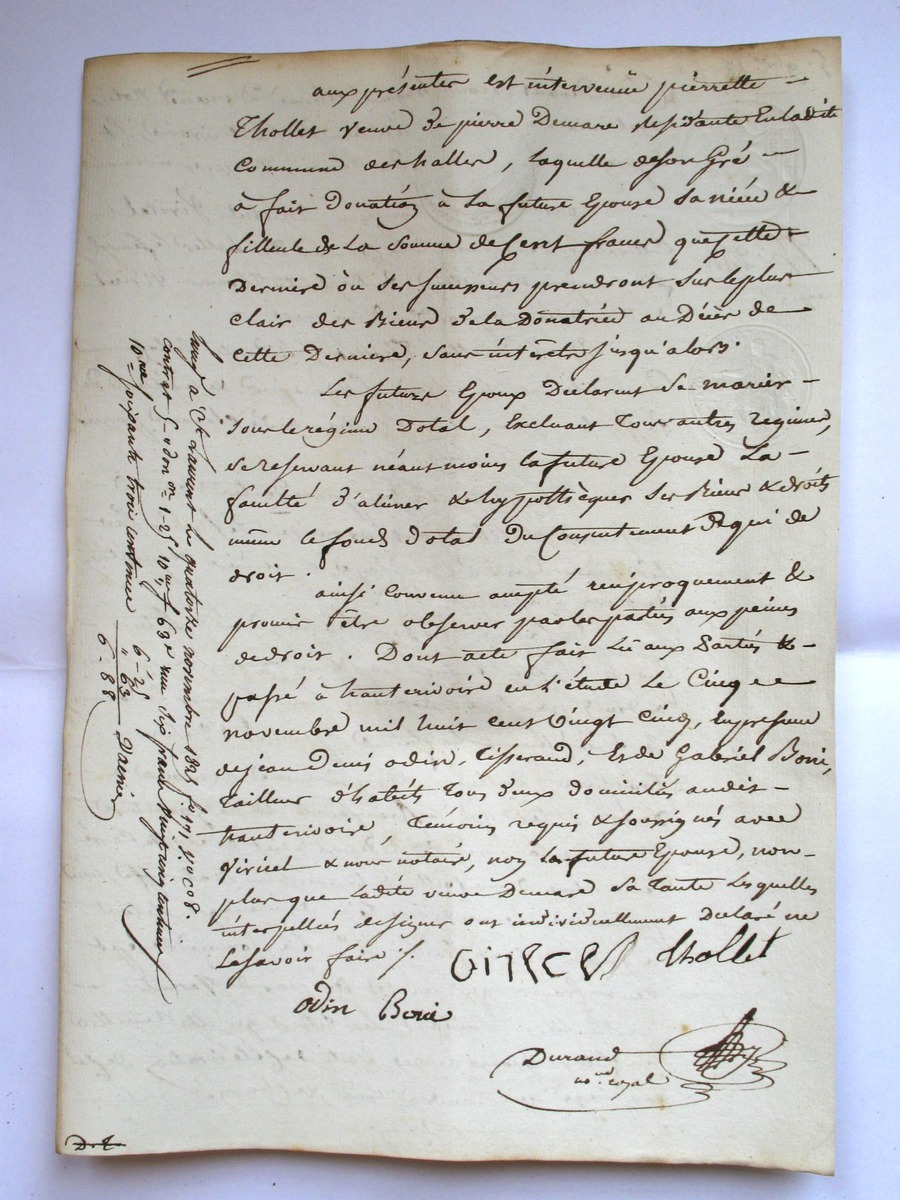 aux présentes est intervenüe pierrette
Thollet veuve de pierre Demare residante En ladite
Commune des halles, Laquelle de son Gré
à fait Donation à La future Epouse sa niéce &
filleule de La somme de Cent francs que Cette
Derniere où ses successeurs prendront sur le plus
Clair des Biens de la Donatrice au Décès de
Cette Derniere, sans intérêts jusqu'alors.
Les futurs Epoux Déclarent se marier
sous le régime Dotal, Excluant Tous autres regimes,
se reservant néantmoins la future Epouse La
faculté d'aliéner & hypothècquer ses Biens & droits
même le fonds Dotal Du Consentement De qui de
droit.
ainsi Convenu accepté reciproquement &
promis être observer par les partiés aux peines
de droit. Dont acte fait Lû aux Partiés &
passé à hauterivoire en L'étude Le Cinq
novembre mil huit cent Vingt Cinq, En presence
de jean Denis odin, Tisserand, Et de Gabriel Borie,
Tailleur d'habits Tous Deux domiciliés audit
hauterivoire, Temoins requis & soussignés avec
Viricel & nous notaire, non La future Epouse, non
plus que Ladite veuve Demare sa Tante Lesquelles
interpellés de signer ont individuellement Déclaré ne
Le savoir faire /.
Viricel Thollet
odin Borie
Durand
no.re royal
St Laurent Le quatorze novembre 1825 f° 171
contrat 5 - don on 1-25 10me f 63
10me soixante trois centimes
6-25
" 63
6-88
D.T